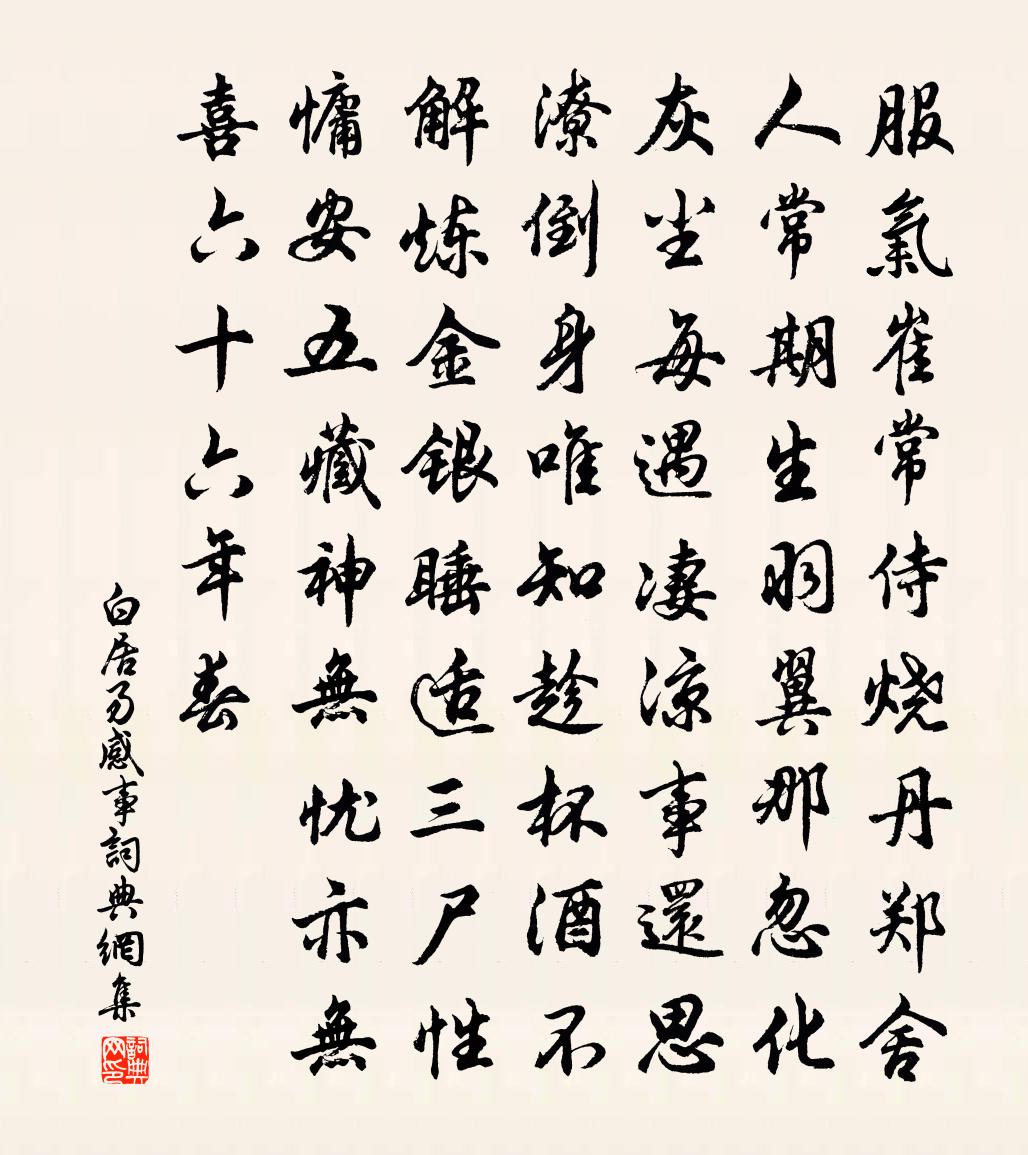 服氣崔常侍烧丹郑舍
人常期生羽翼那忽化
灰尘每遇凄凉事還思
潦倒身唯知趁杯酒不
解炼金銀睡适三尸性
慵安五藏神無忧亦無
喜六十六年春
白居易感事詞典網集
詞典网印